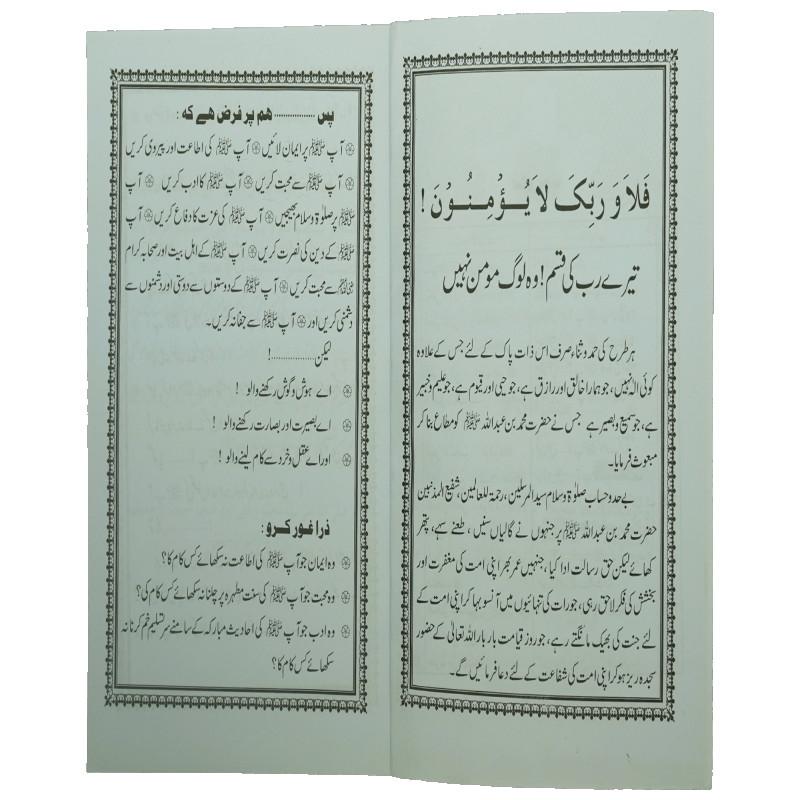 فَلاَ وَ رَبِّکَ لاَ یُــؤْمِـنُــوْنَ !
تیرے رب کی قسم ! وہ لوگ مومن نہیں
ہر طرح کی حمد و ثناء صرف اس ذات پاک کے لئے جس کے علاوہ
کوئی الٰہ نہیں، جو ہمارا خالق اور رازق ہے، جو حیی اور قیوم ہے، جو علیم و خبیر
ہے، جو سمیع و بصیر ہے جس نے حضرت محمد بن عبداللہ ﷺ کو مطاع بنا کر
مبعوث فرمایا۔
بے حد و حساب صلوٰۃ و سلام سید المرسلین، رحمۃ للعالمین، شفیع المذنبین
حضرت محمد بن عبداللہ ﷺ پر جنہوں نے گالیاں سنیں، طعنے سہے، پتھر
کھائے لیکن حق رسالت ادا کیا، جنہیں عمر بھر اپنی امت کی مغفرت اور
بخشش کی فکر لاحق رہی، جو رات کی تنہائیوں میں آنسو بہا کر اپنی امت کے
لئے جنت کی بھیک مانگتے رہے، جو روز قیامت بار بار اللہ تعالیٰ کے حضور
سجدہ ریز ہو کر اپنی امت کی شفاعت کے لئے دعا فرمائیں گے۔
پس ............... ہم پر فرض ہے کہ :
֍ آپ ﷺ پر ایمان لائیں ֍ آپ ﷺ کی اطاعت اور پیروی کریں
֍ آپ ﷺ سے محبت کریں ֍ آپ ﷺ کا ادب کریں ֍ آپ
ﷺ پر صلوٰۃ و سلام بھیجیں ֍ آپ ﷺ کی عزت کا دفاع کریں ֍ آپ
ﷺ کے دین کی نصرت کریں ֍ آپ ﷺ کے اہل بیت اور صحابہ کرام
سے محبت کریں ֍ آپ ﷺ کے دوستوں سے دوستی اور دشمنوں سے
دشمنی کریں اور ֍ آپ ﷺ سے جفا نہ کریں۔
لیکن ............... !
֍ اے ہوش و گوش رکھنے والو !
֍ اے بصیرت اور بصارت رکھنے والو !
֍ اور اے عقل و خرد سے کام لینے والو !
ذرا غور کرو :
֍ وہ ایمان جو آپ ﷺ کی اطاعت نہ سکھائے کس کام کا؟
֍ وہ محبت جو آپ ﷺ کی سنت مطہرہ پر چلنا نہ سکھائے کس کام کی؟
֍ وہ ادب جو آپ ﷺ کی احادیث مبارکہ کے سامنے سر تسلیم خم کرنا نہ
سکھائے کس کام کا؟